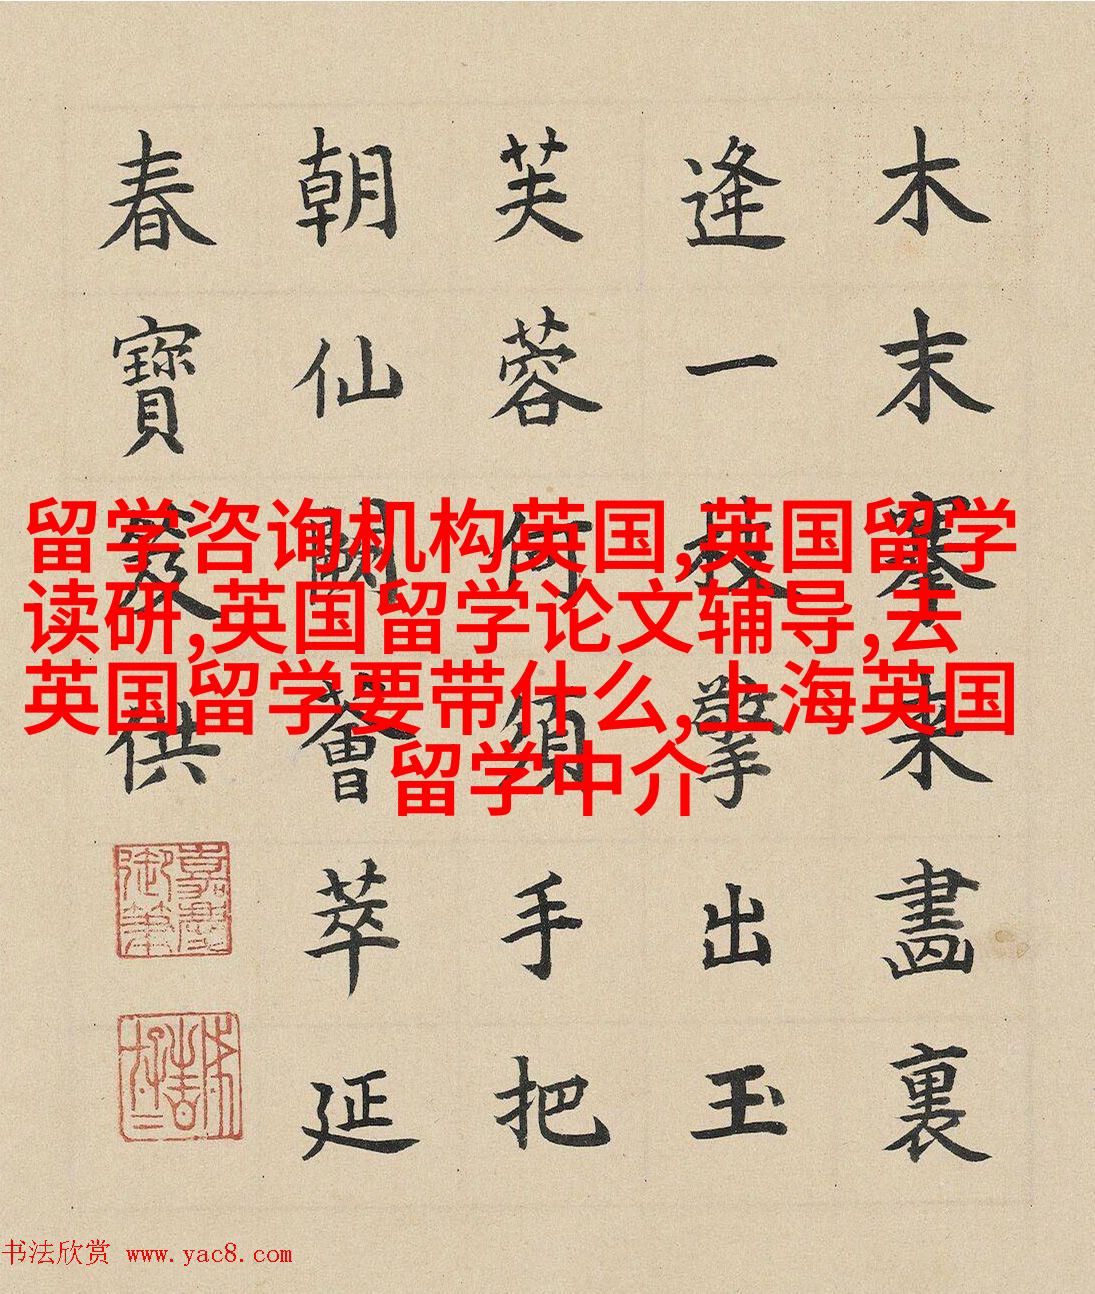 木末搴來畫裏
逢一枝擎出玉
芙蓉何須手把
朝仙闕薈萃延
春寶笈供
嘉慶御筆
留学咨询机构英国,英国留学
读研,英国留学论文辅导,去
英国留学要带什么,上海英国
留学中介
书法欣赏 www.yac8.com